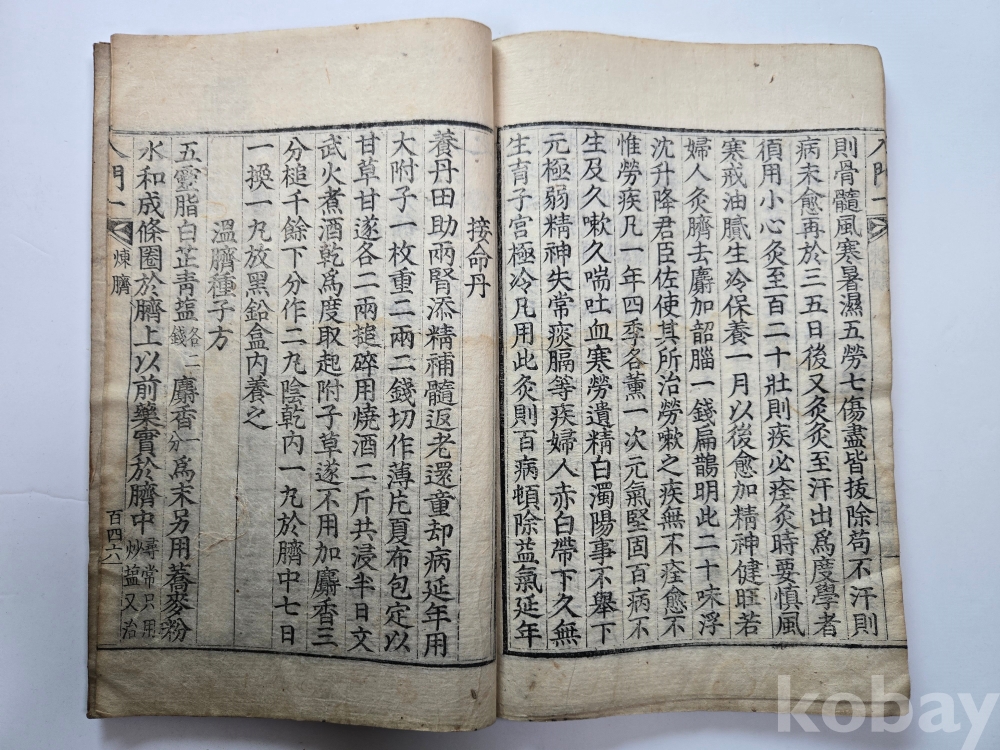 則骨髓風寒暑濕五勞七傷盡皆拔除苟不汗則
病未愈再於三五日後又灸灸至汗出爲度學者
湏用小心灸至百二十壯則疾必痊灸時要慎風
寒戒油膩生冷保養一月以後愈加精神健旺若
婦人灸臍去麝加韶腦一錢扁鵲明此二十味浮
沈升降君臣佐使其所治勞嗽之疾無不痊愈不
惟勞疾凡一年四季各薰一次元氣堅固百病不
生及久嗽久喘吐血寒勞遺精白濁陽事不舉下
元極弱精神失常痰膈等疾婦人赤白帶下久無
生育子宮極冷凡用此灸則百病頓除益氣延年
接命丹
養丹田助兩腎添精補髓返老還童却病延年用
大附子一枚重二兩二錢切作薄片夏布包定以
甘草甘遂各二兩搥碎用燒酒二斤共浸半日文
武火煮酒乾爲度取起附子草遂不用加麝香三
分槌千餘下分作二丸陰乾內一丸於臍中七日
一換一丸放黑鉛盒內養之
溫臍種子方
五靈脂白芷靑塩各二錢麝香一分爲末另用蕎麥粉
水和成條圈於臍上以前藥實於臍中尋常只用炒塩又治
入門一
煉臍
百四六
入門一
kobay